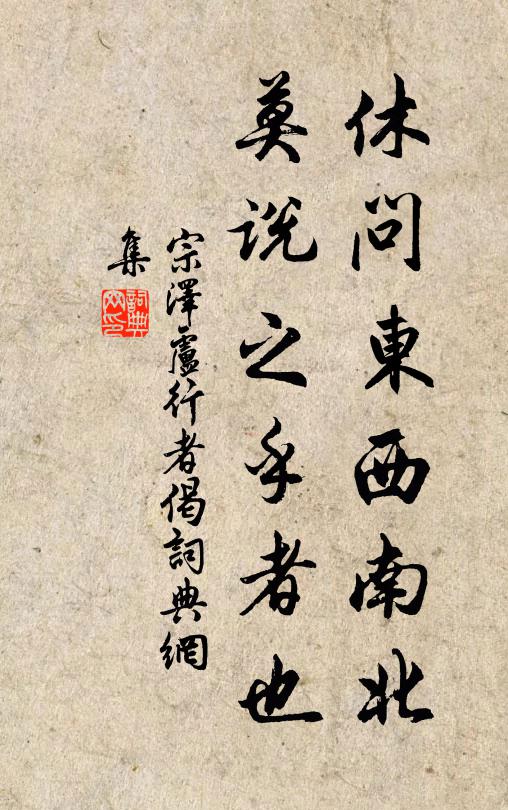 休問東西南北
莫說之乎者也
宗澤盧行者偈詞典網
集
詞典
网印